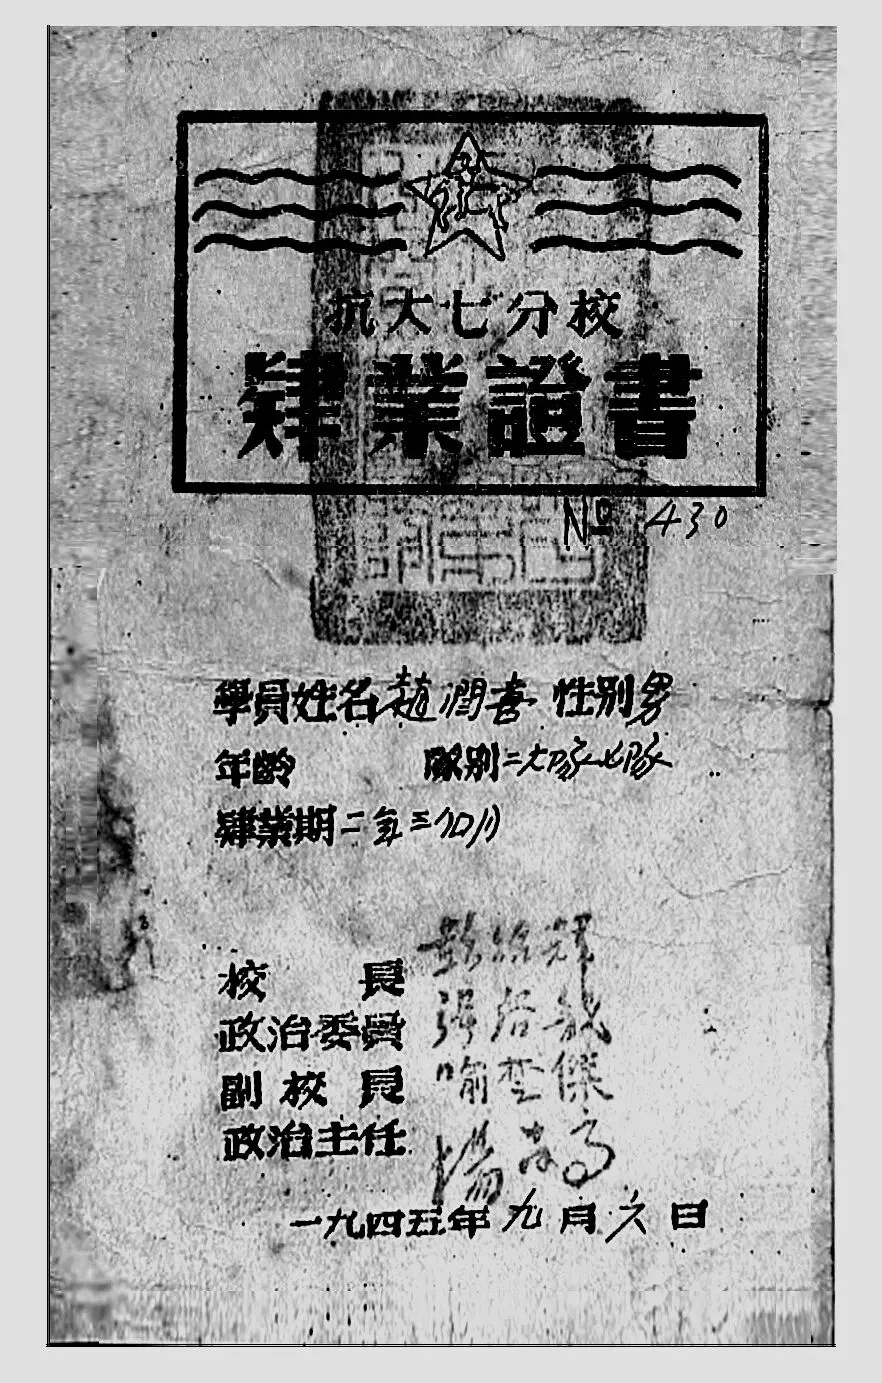 抗大七分校
肄業證書
№ 430
學員姓名趙潤喜 性別男
年齡 隊別二大隊七隊
肄業期二年三個月
校長 彭紹輝
政治委員 張啓龍
副校長 喻楚傑
政治主任 楊尚高
一九四五年九月六日